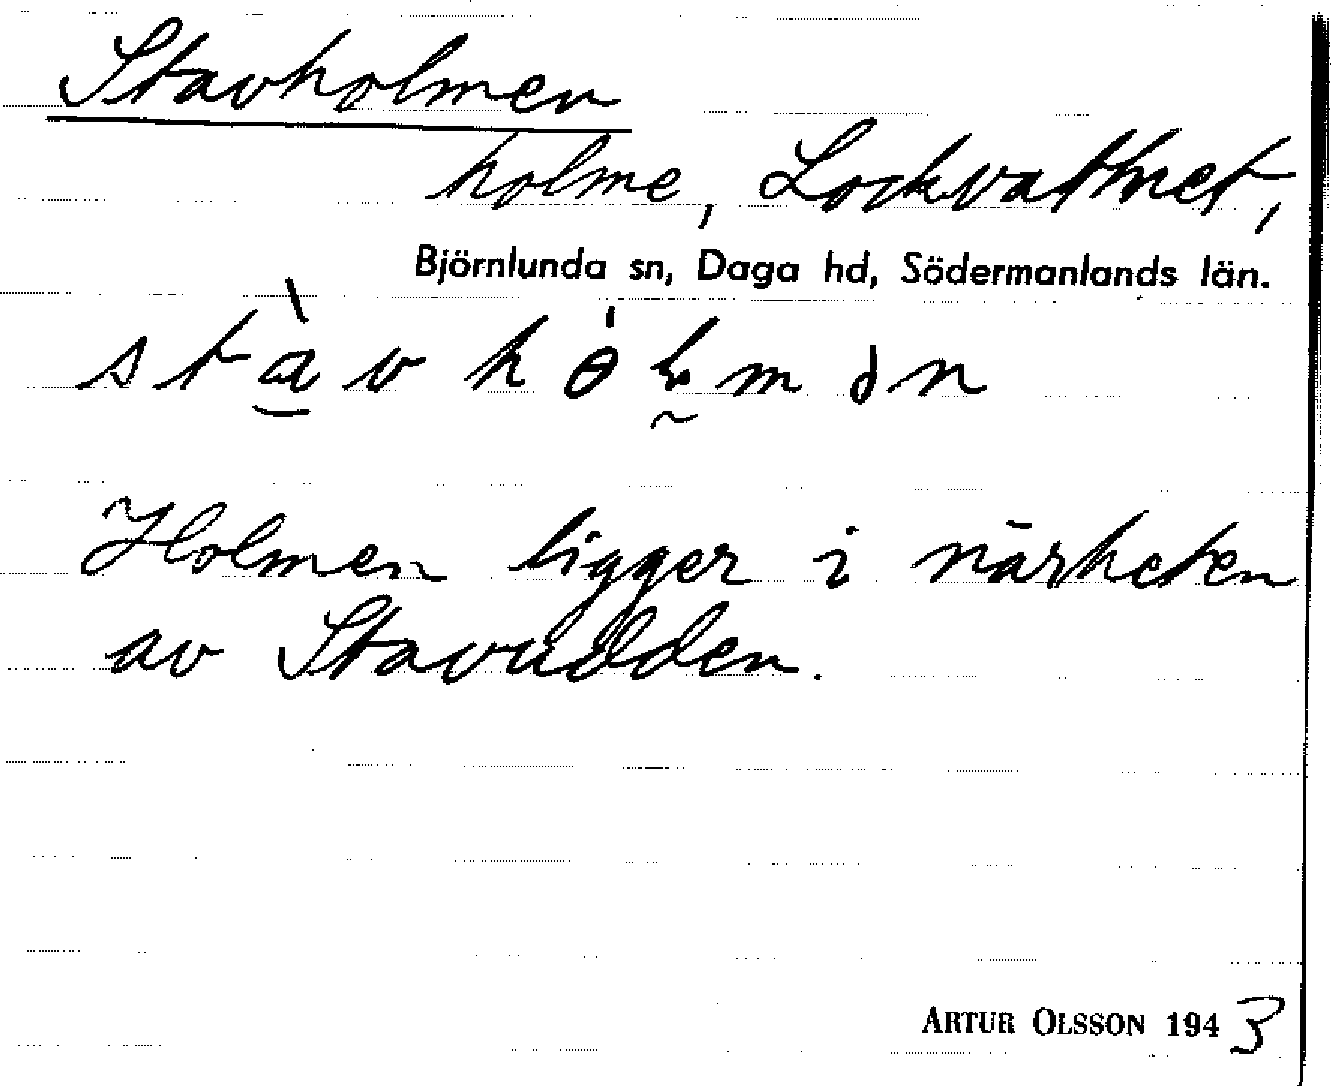 Stavholmen
holme, Lockvattnet,
Björnlunda sn, Daga hd, Södermanlands län.
Holmen ligger i närheten
av Stavudden.
ARTUR OLSSON 1943